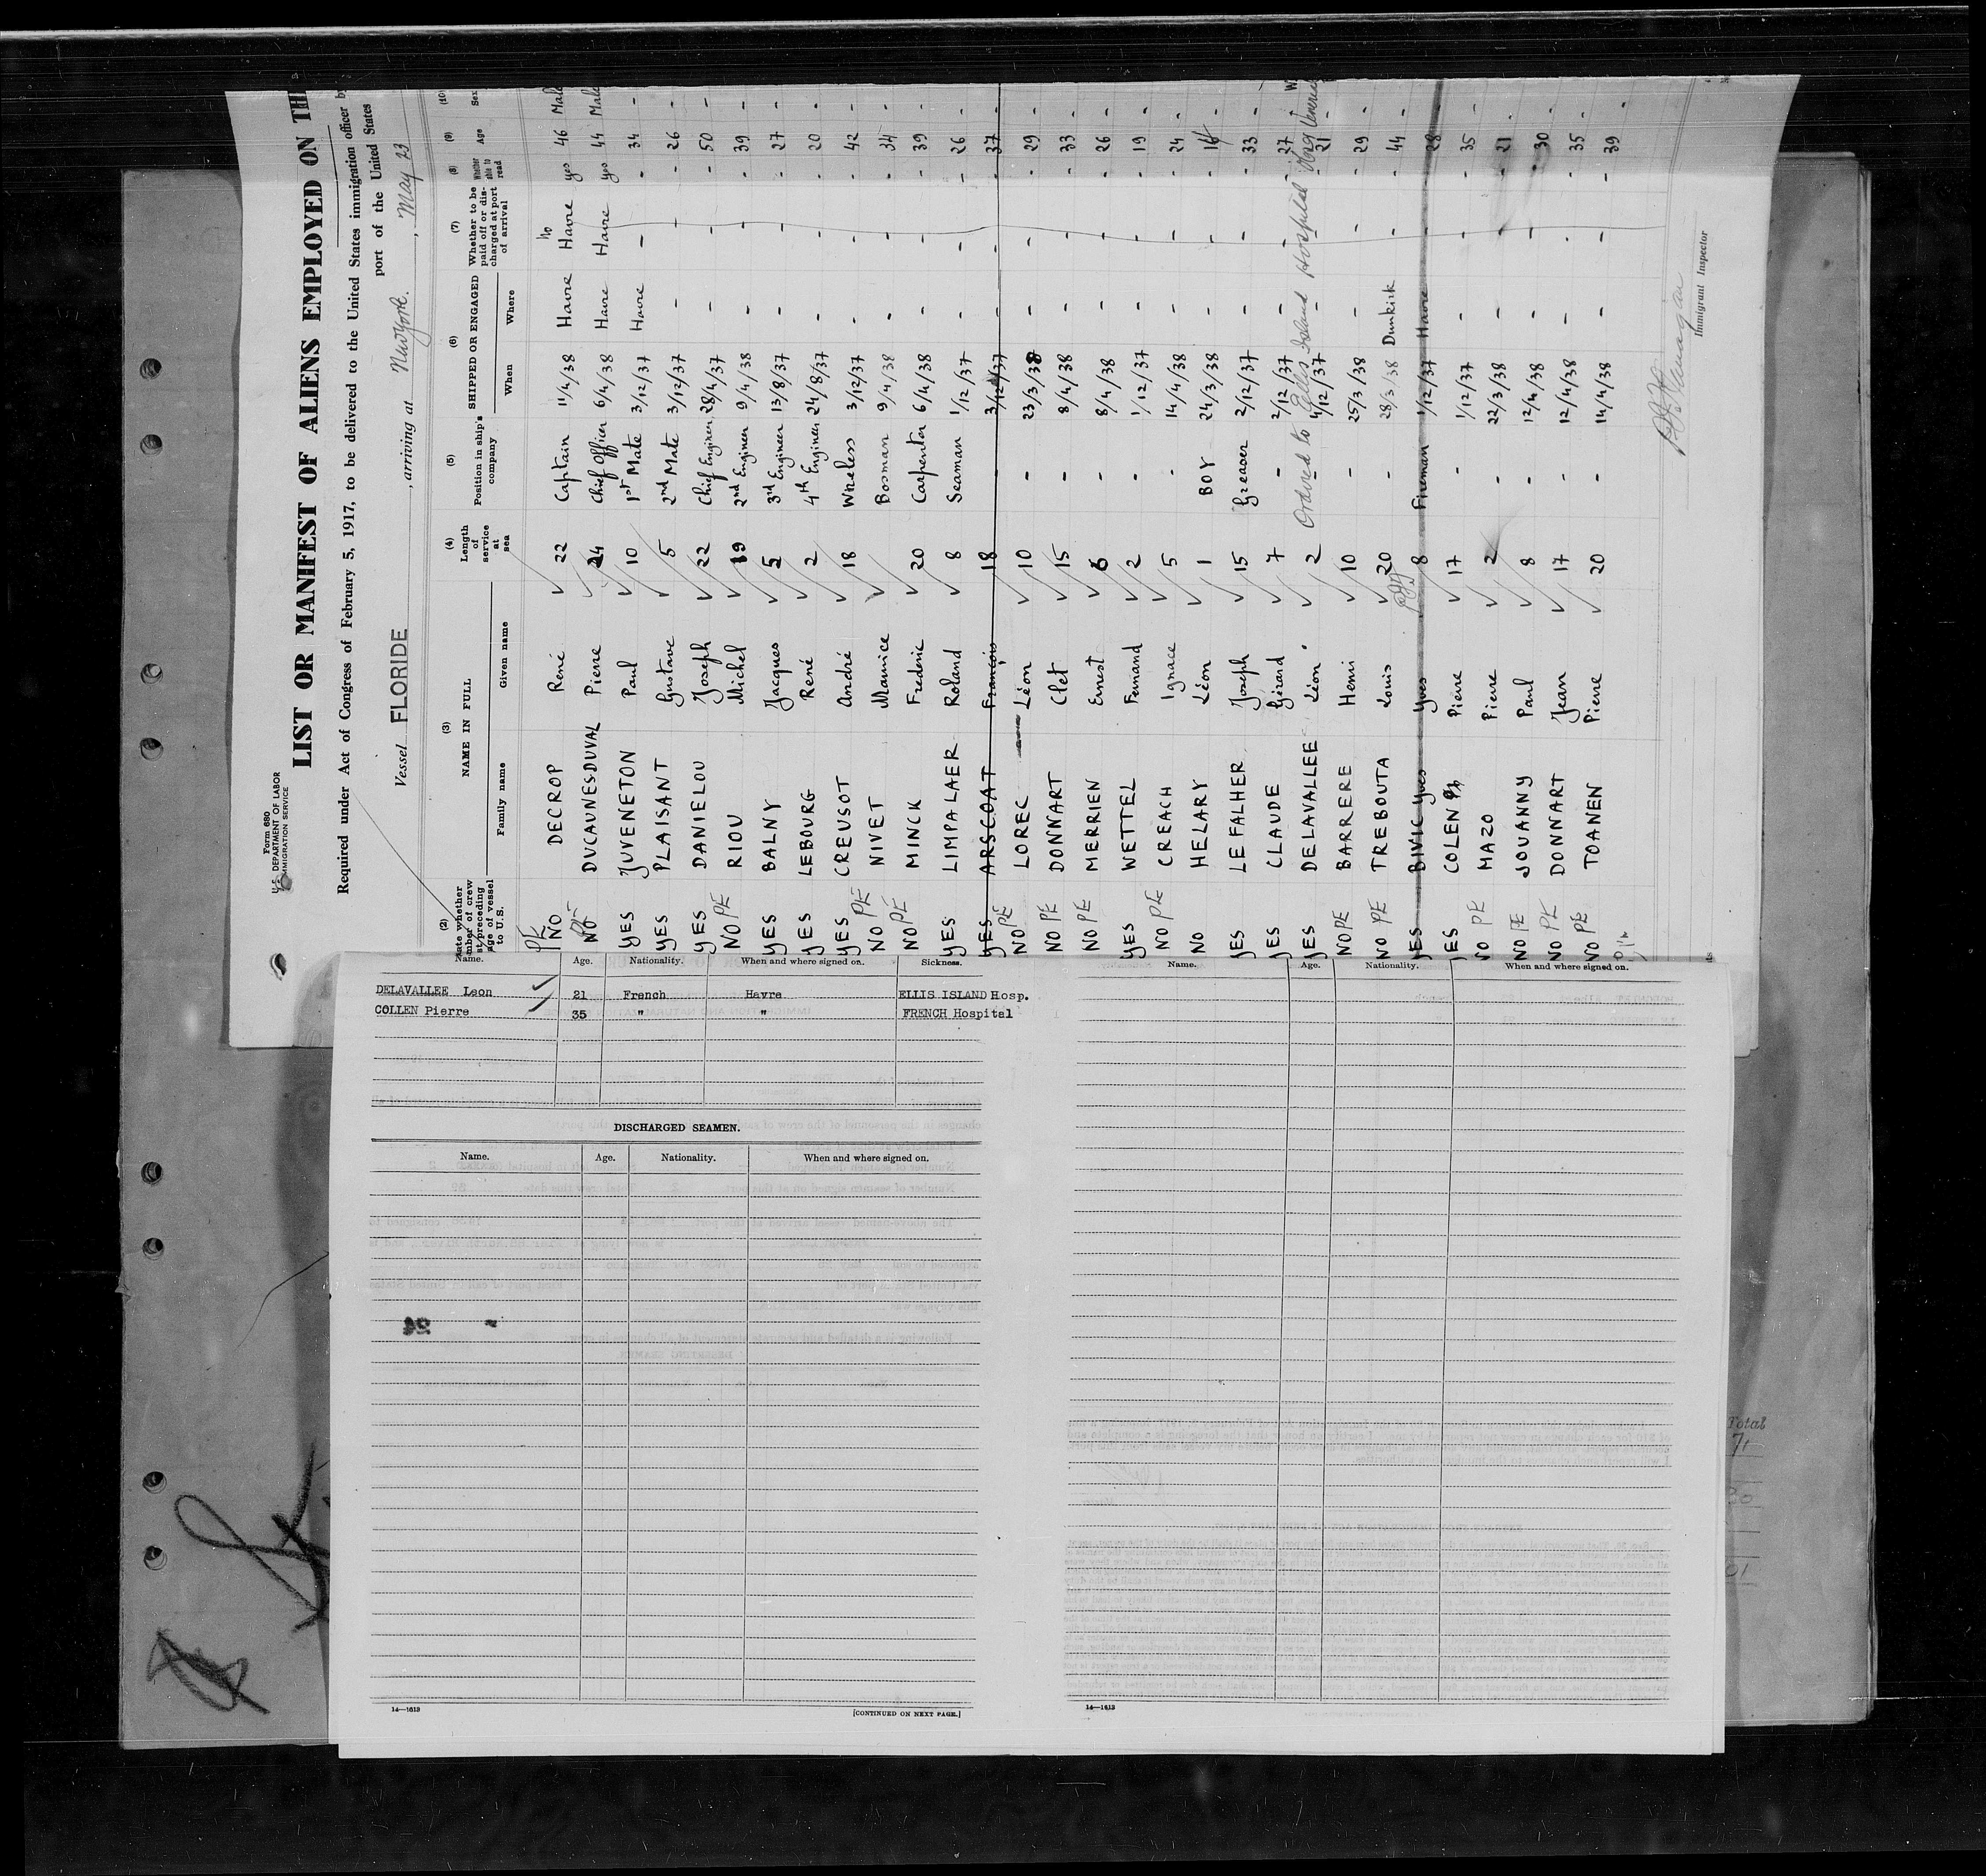 Form 680
U.S. DEPARTMENT OF LABOR
IMMIGRATION SERVICE
LIST OR MANIFEST OF ALIENS EMPLOYED ON TH
Required under Act of Congress of February 5, 1917, to be delivered to the United States immigration officer by
port of the United States
Vessel FLORIDE , arriving at New York. , May 23
(2) (3) (4) (5) (6) (7) (8) (9) (10)
NAME IN FULL Length of service at sea Position in ship's company SHIPPED OR ENGAGED Whether to be paid off or discharged at port of arrival Whether able to read Age Sex
Family name Given name When Where
PE NO DECROP René 22 Captain 11/4/38 Havre no Havre yes 46 Male
NO PE DUCAUNES-DUVAL Pierre 24 Chief Officer 6/4/38 Havre Havre yes 44 Male
YES JUVENETON Paul 10 1st Mate 3/12/37 Havre - - 34 -
YES PLAISANT Gustave 5 2nd Mate 3/12/37 - - - 26 -
YES DANIELOU Joseph 22 Chief Engineer 28/4/37 - - - 50 -
NO PE RIOU Michel 19 2nd Engineer 9/4/38 - - - 39 -
YES BALNY Jacques 5 3rd Engineer 13/8/37 - - - 27 -
YES LEBOURG René 2 4th Engineer 24/8/37 - - - 20 -
YES CREUSOT André 18 Wireless 3/12/37 - - - 42 -
NO PE NIVET Maurice Bosman 9/4/38 - - - 34 -
NO PE MINCK Frederic 20 Carpenter 6/4/38 - - - 39 -
YES LIMPALAER Roland 8 Seaman 1/12/37 - - - 26 -
YES ARSCOAT François 18 - 3/12/37 - - - 37 -
NO PE LOREC Léon 10 - 23/3/38 - - - 29 -
NO PE DONNART Clet 15 - 8/4/38 - - - 33 -
NO PE MERRIEN Ernest 6 - 8/4/38 - - - 26 -
YES WETTEL Fernand 2 - 1/12/37 - - - 19 -
NO PE CREACH Ignace 5 - 14/4/38 - - - 24 -
NO HELARY Léon 1 BOY 24/3/38 - - - 16 -
YES LE FALHER Joseph 15 Greaser 2/12/37 - - - 33 -
YES CLAUDE Gérard 7 - 2/12/37 - - - 27 -
Ordered to Ellis Island Hospital
YES DELAVALLEE Léon 2 - 4/12/37 - - - 21 -
NO PE BARRERE Henri 10 - 25/3/38 - - - 29 -
NO PE TREBOUTA Louis 20 - 28/3/38 Dunkirk - - 44 -
YES BIVIC Yves Yves 8 Fireman 1/12/37 Havre - - 28 -
YES COLEN Pierre 17 - 1/12/37 - - - 35 -
NO PE MAZO Pierre 2 - 22/3/38 - - - 21 -
NO PE JOUANNY Paul 8 - 12/4/38 - - - 30 -
NO PE DONNART Jean 17 - 12/4/38 - - - 35 -
NO PE TOANEN Pierre 20 - 14/4/38 - - - 39 -
Immigrant Inspector
Name. Age. Nationality. When and where signed on. Sickness.
DELAVALLEE Leon 21 French Havre ELLIS ISLAND Hosp.
COLLEN Pierre 35 " " FRENCH Hospital
DISCHARGED SEAMEN.
Name. Age. Nationality. When and where signed on.
14—1613
[CONTINUED ON NEXT PAGE.]
Name. Age. Nationality. When and where signed on.
14—1613
Total
71
30
01